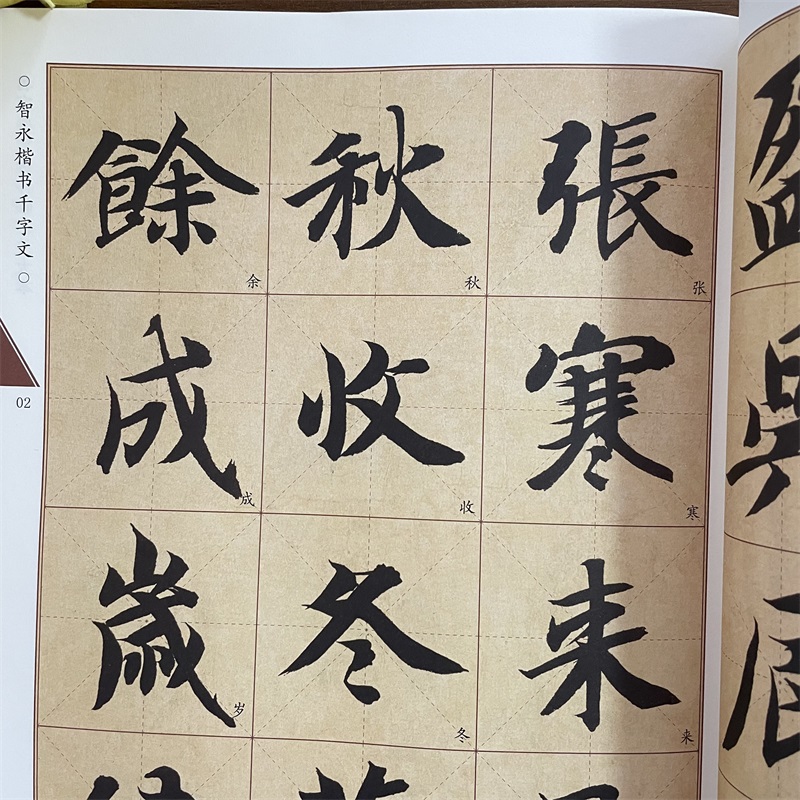 張张
寒寒
来来
秋秋
收收
冬冬
餘余
成成
歲岁
○智永楷书千字文○
02